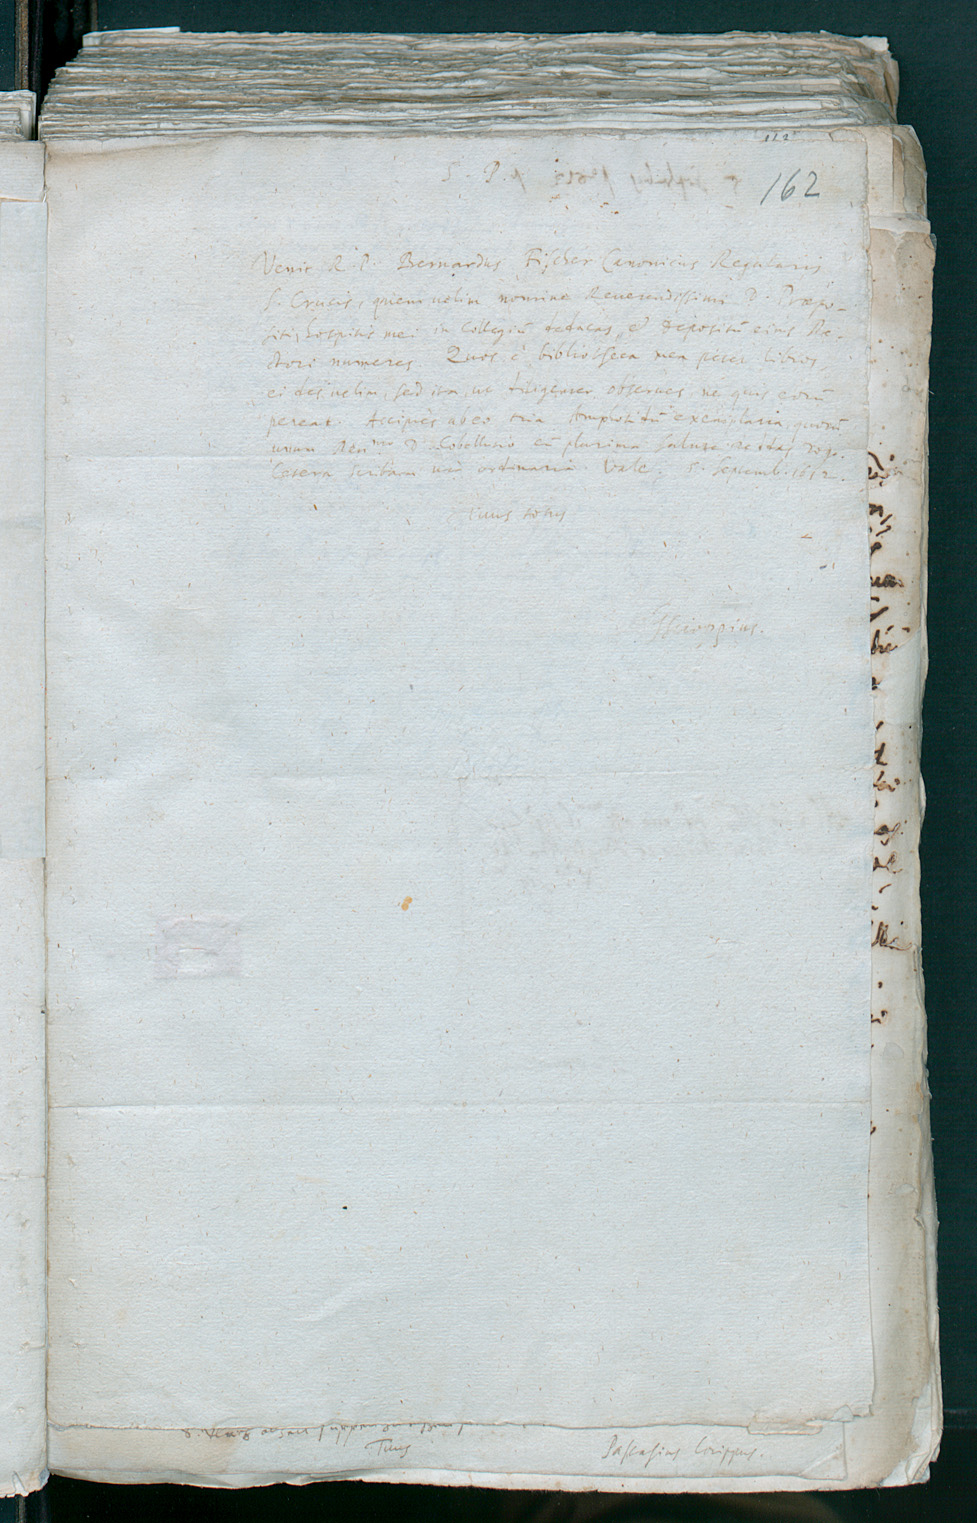 112
162
S. P.
Venit R. P. Bernardus Fischer Canonicus Regularis
S. Crucis, quem velim nomine Reverendissimi D. Præpo-
siti, hospitis mei in Collegiũ deducas, et depositũ eius Re-
ctori numeres. Quos è bibliotheca mea petet libros,
ei des velim, sed ita, ut diligenter observes ne quis eorũ
pereat. Accipies ab eo tria Amphotidũ exemplaria, quorũ
unum Reu.mo D. Cobellucio cũ plurima salute reddas rogo.
Cetera scribam via ordinaria. Vale. 5. Septemb. 1612.
Tuus totus
Scioppius.
Tuus
Pascasius Grippus.